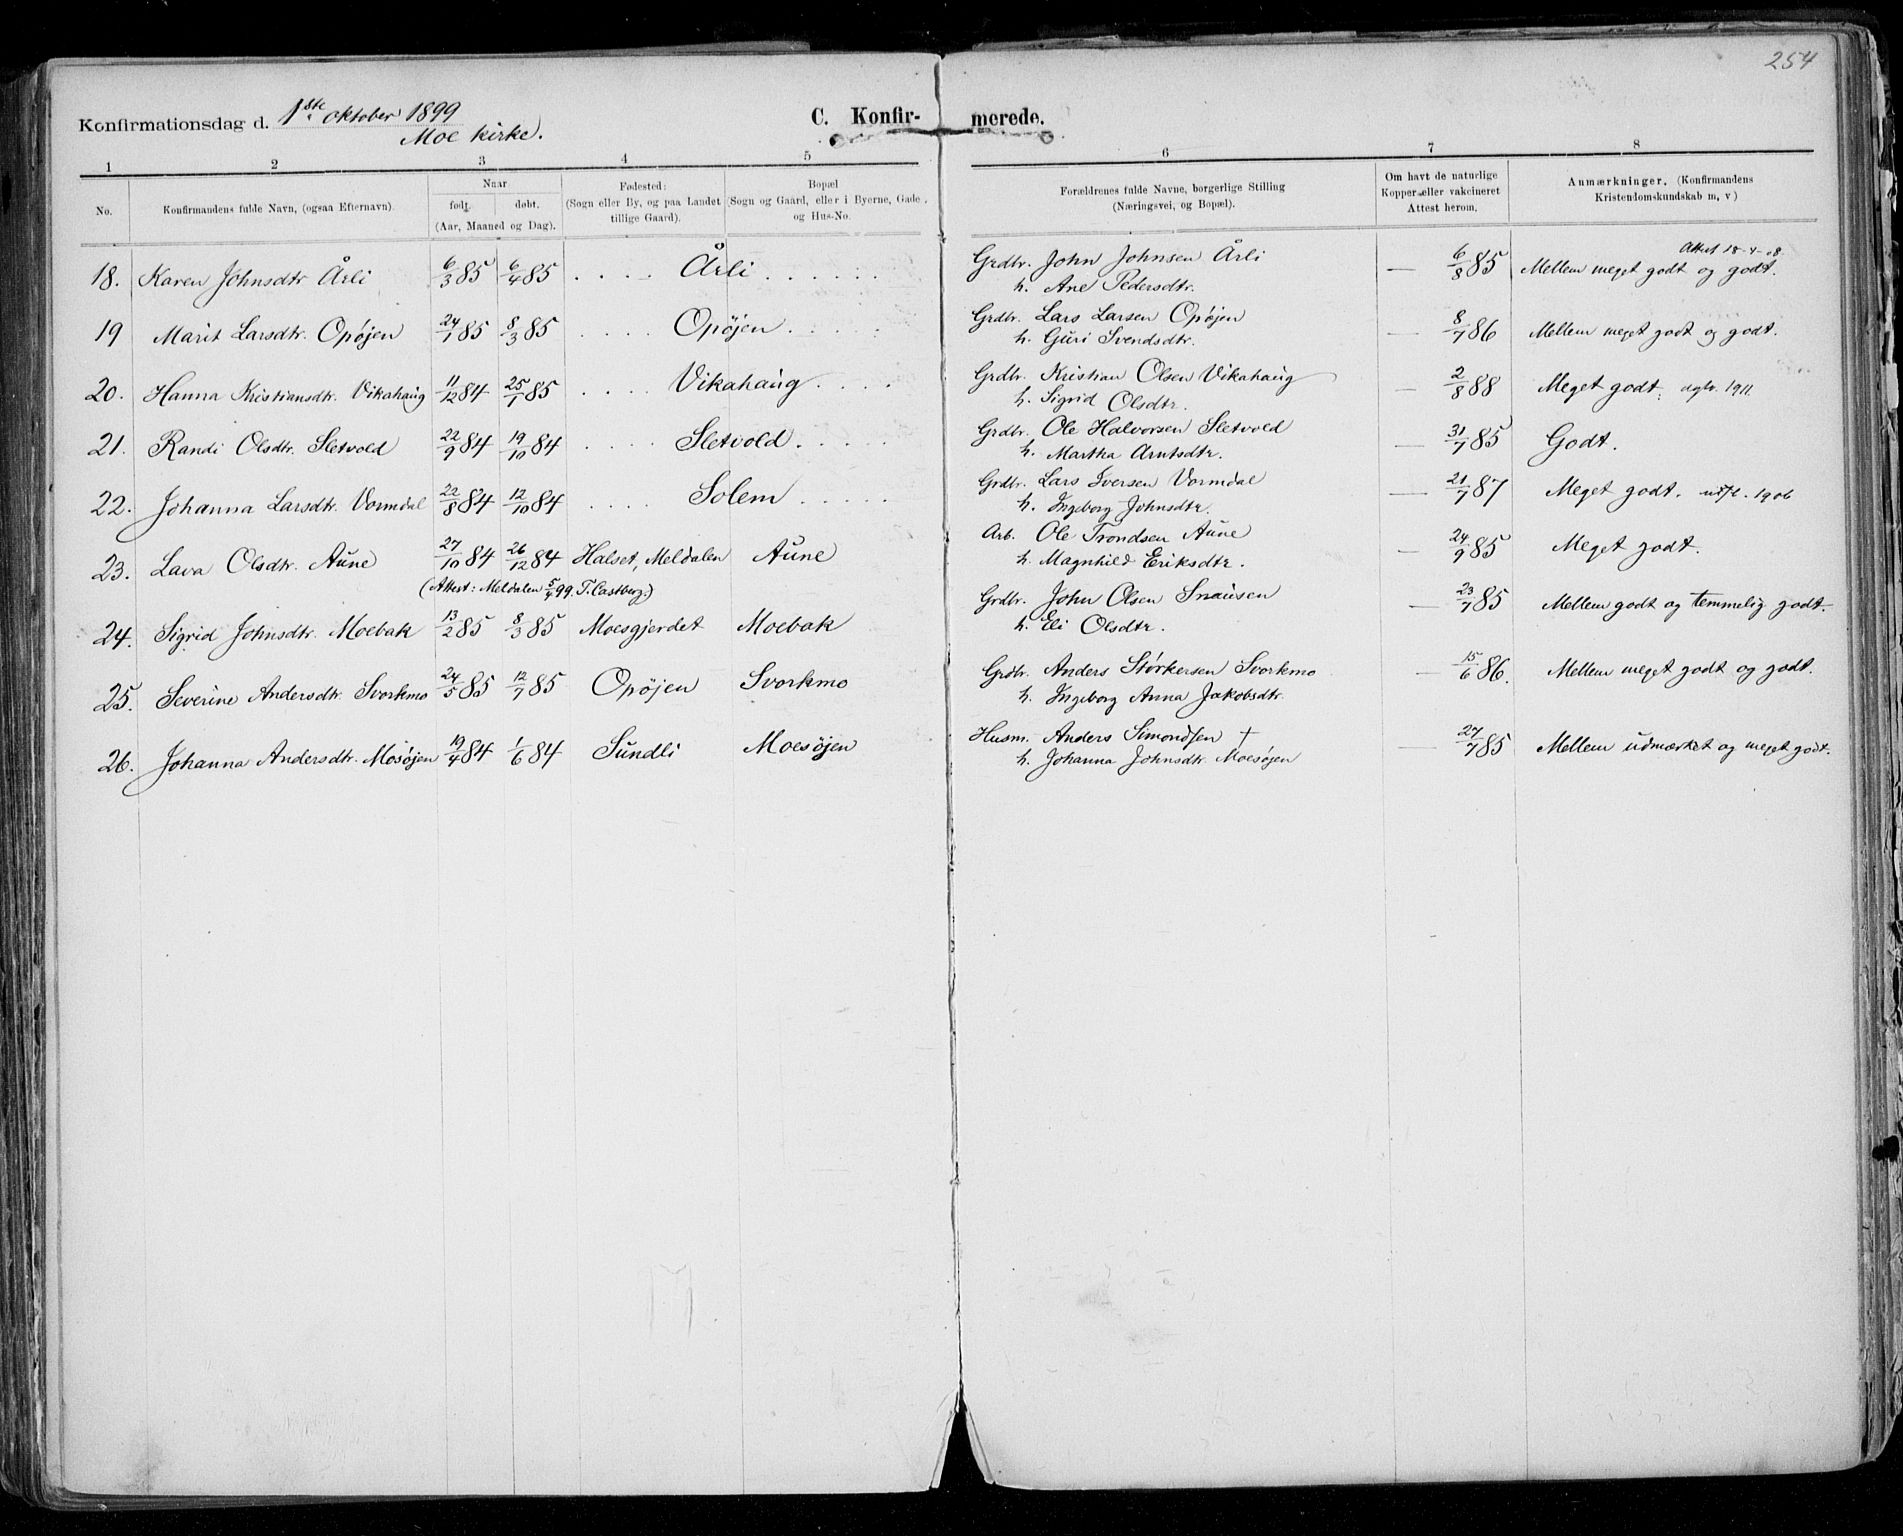 254
Konfirmationsdag d. 1ste oktober 1899
Moe kirke.
C. Konfirmerede.
1 2 3 4 5 6 7 8
No. Konfirmandens fulde Navn, (ogsaa Efternavn). Naar født. døbt. (Aar, Maaned og Dag). Fødested: (Sogn eller By, og paa Landet tillige Gaard). Bopæl (Sogn og Gaard, eller i Byerne, Gade og Hus-No. Forældrenes fulde Navne, borgerlige Stilling (Næringsvei, og Bopæl). Om havt de naturlige Kopper eller vakcineret Attest herom. Anmærkninger. (Konfirmandens Kristendomskundskab m, v)
Attest 18-4-08.
18. Karen Johnsdtr Årli 6/3 85 6/4 85 . . . . Årli . . . . . . Grdbr. John Johnsen Årli — 6/8 85 Mellem meget godt og godt.
h. Ane Pedersdtr.
19 Marit Larsdtr. Opøjen 24/1 85 8/3 85 . . . . Opøjen . . . . . Grdbr. Lars Larsen Opøjen — 8/7 86 Mellem meget godt og godt.
h. Guri Svendsdtr.
20. Hanna Kristiansdtr. Vikahaug 11/12 84 25/1 85 . . . . Vikahaug . . . . Grdbr. Kristian Olsen Vikahaug — 2/8 88 Meget godt. 1911.
h. Sigrid Olsdtr.
21. Randi Olsdtr. Sletvold 22/9 84 19/10 84 . . . . Sletvold . . . . . Grdbr. Ole Halvorsen Sletvold — 31/7 85 Godt.
h. Martha Arntsdtr.
22. Johanna Larsdtr. Vormdal 22/8 84 12/10 84 . . . . Solem . . . . . Grdbr. Lars Iversen Vormdal — 21/7 87 Meget godt. utfl. 1906
h. Ingeborg Johnsdtr.
23. Lava Olsdtr. Aune 27/10 84 26/12 84 Halset, Meldalen Aune Arb. Ole Trondsen Aune — 24/9 85 Meget godt.
(Attest: Meldalen 5/4 99. T. Castberg.) h. Magnhild Eriksdtr.
24. Sigrid Johnsdtr. Moebak 13/2 85 8/3 85 Moesgjerdet Moebak Grdbr. John Olsen Snausen — 23/7 85 Mellem godt og temmelig godt.
h. Eli Olsdtr.
25. Severine Andersdtr. Svorkmo 24/5 85 12/7 85 Opøjen Svorkmo Grdbr. Anders Størkersen Svorkmo — 15/6 86. Mellem meget godt og godt.
h. Ingeborg Anna Jakobsdtr.
26. Johanna Andersdtr. Mosøjen 19/4 84 1/6 84 Sundli Moesøjen Husm. Anders Simondsen † — 27/7 85 Mellem udmærket og meget godt.
h. Johanna Johnsdtr. Moesøjen